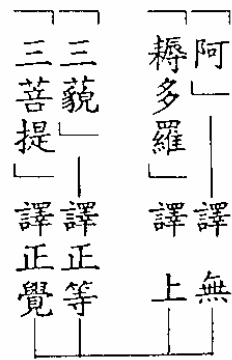 「阿」譯無
「耨多羅」譯上
「三藐」譯正等
「三菩提」譯正覺